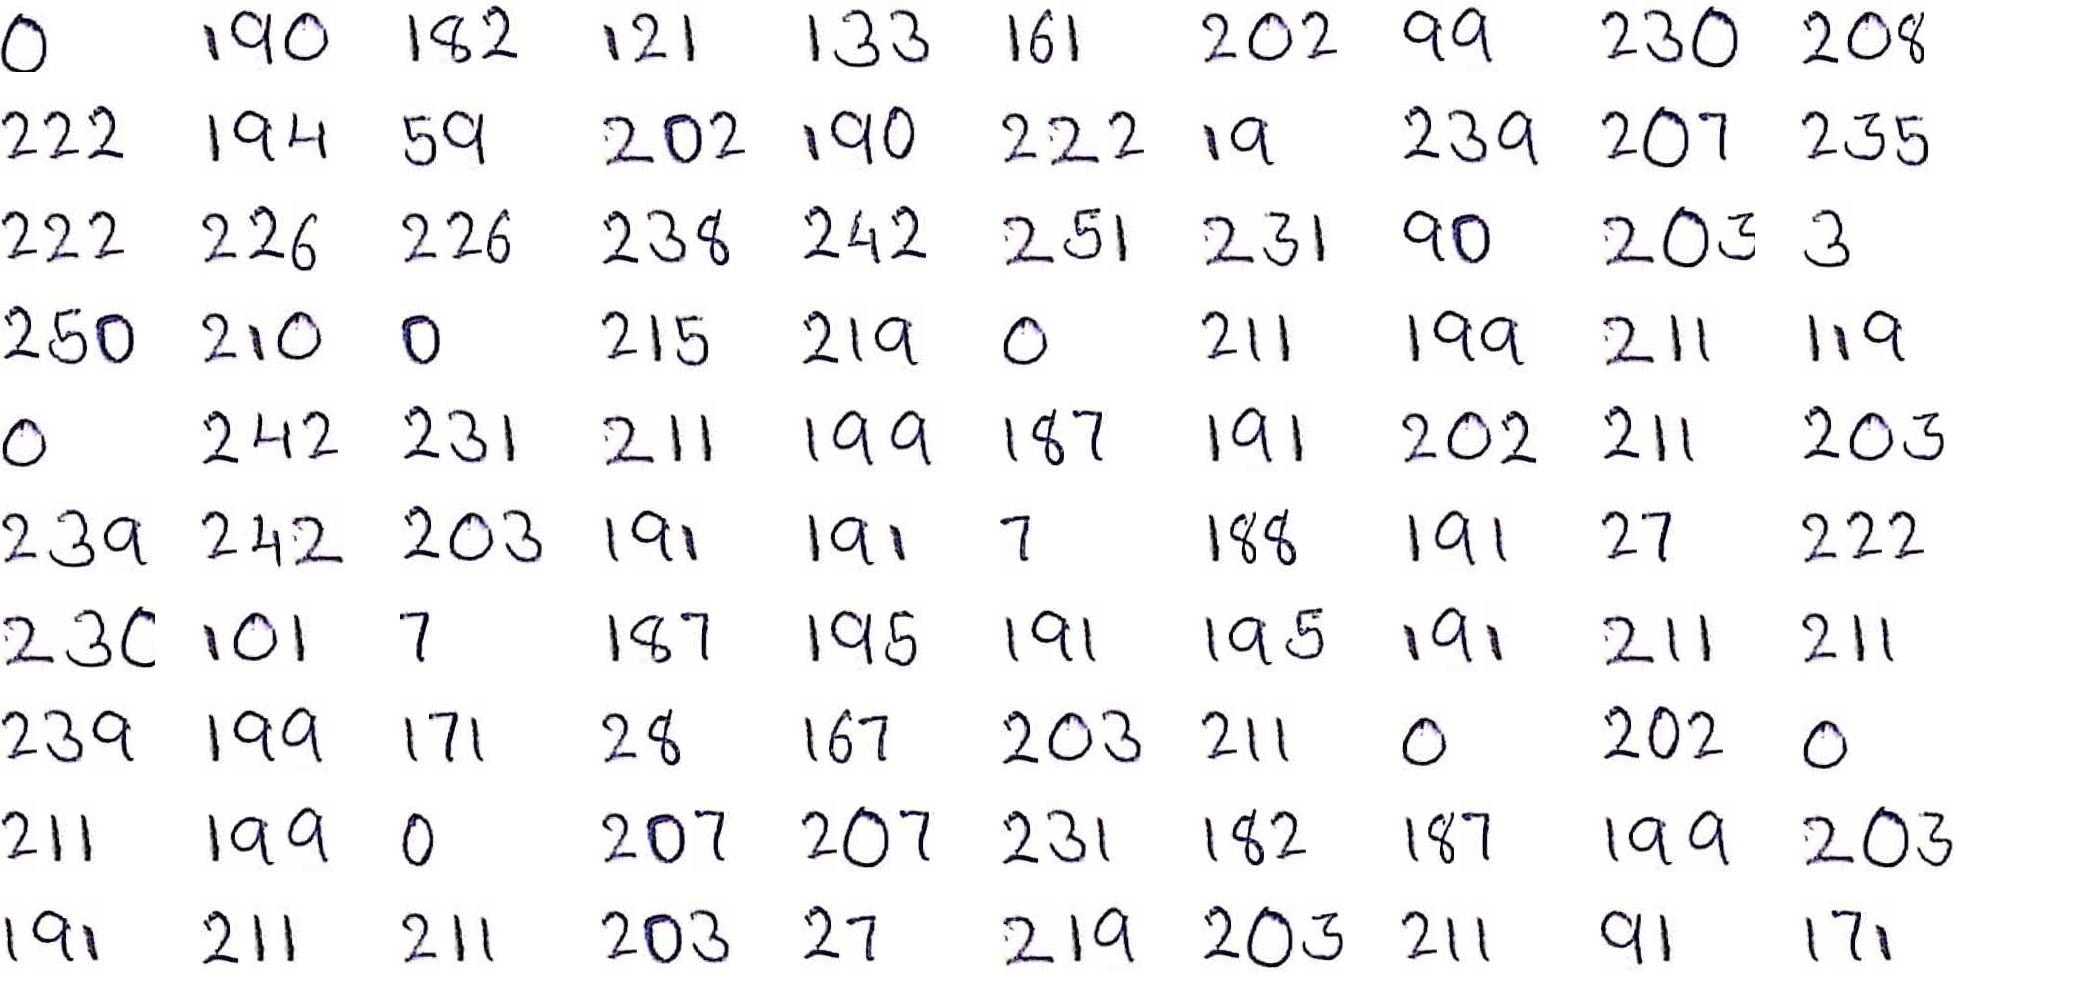 0 190 182 121 133 161 202 99 230 208
222 194 59 202 190 222 19 239 207 235
222 226 226 238 242 251 231 90 203 3
250 210 0 215 219 0 211 199 211 119
0 242 231 211 199 187 191 202 211 203
239 242 203 191 191 7 188 191 27 222
230 101 7 187 195 191 195 191 211 211
239 199 171 28 167 203 211 0 202 0
211 199 0 207 207 231 182 187 199 203
191 211 211 203 27 219 203 211 91 171